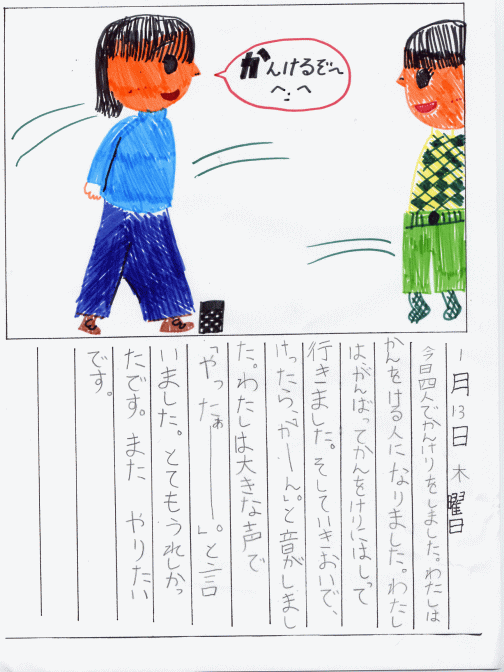 かんけるぞ〜
1月13日 木曜日
今日四人でかんけりをしました。わたしは
かんをける人になりました。わたし
は、がんばってかんをけりにはしって
行きました。そしていきおいで、
けったら、「がーん。」と音がしまし
た。わたしは大きな声で
「やったぁ―――。」と言
いました。とてもうれしかっ
たです。また やりたい
です。